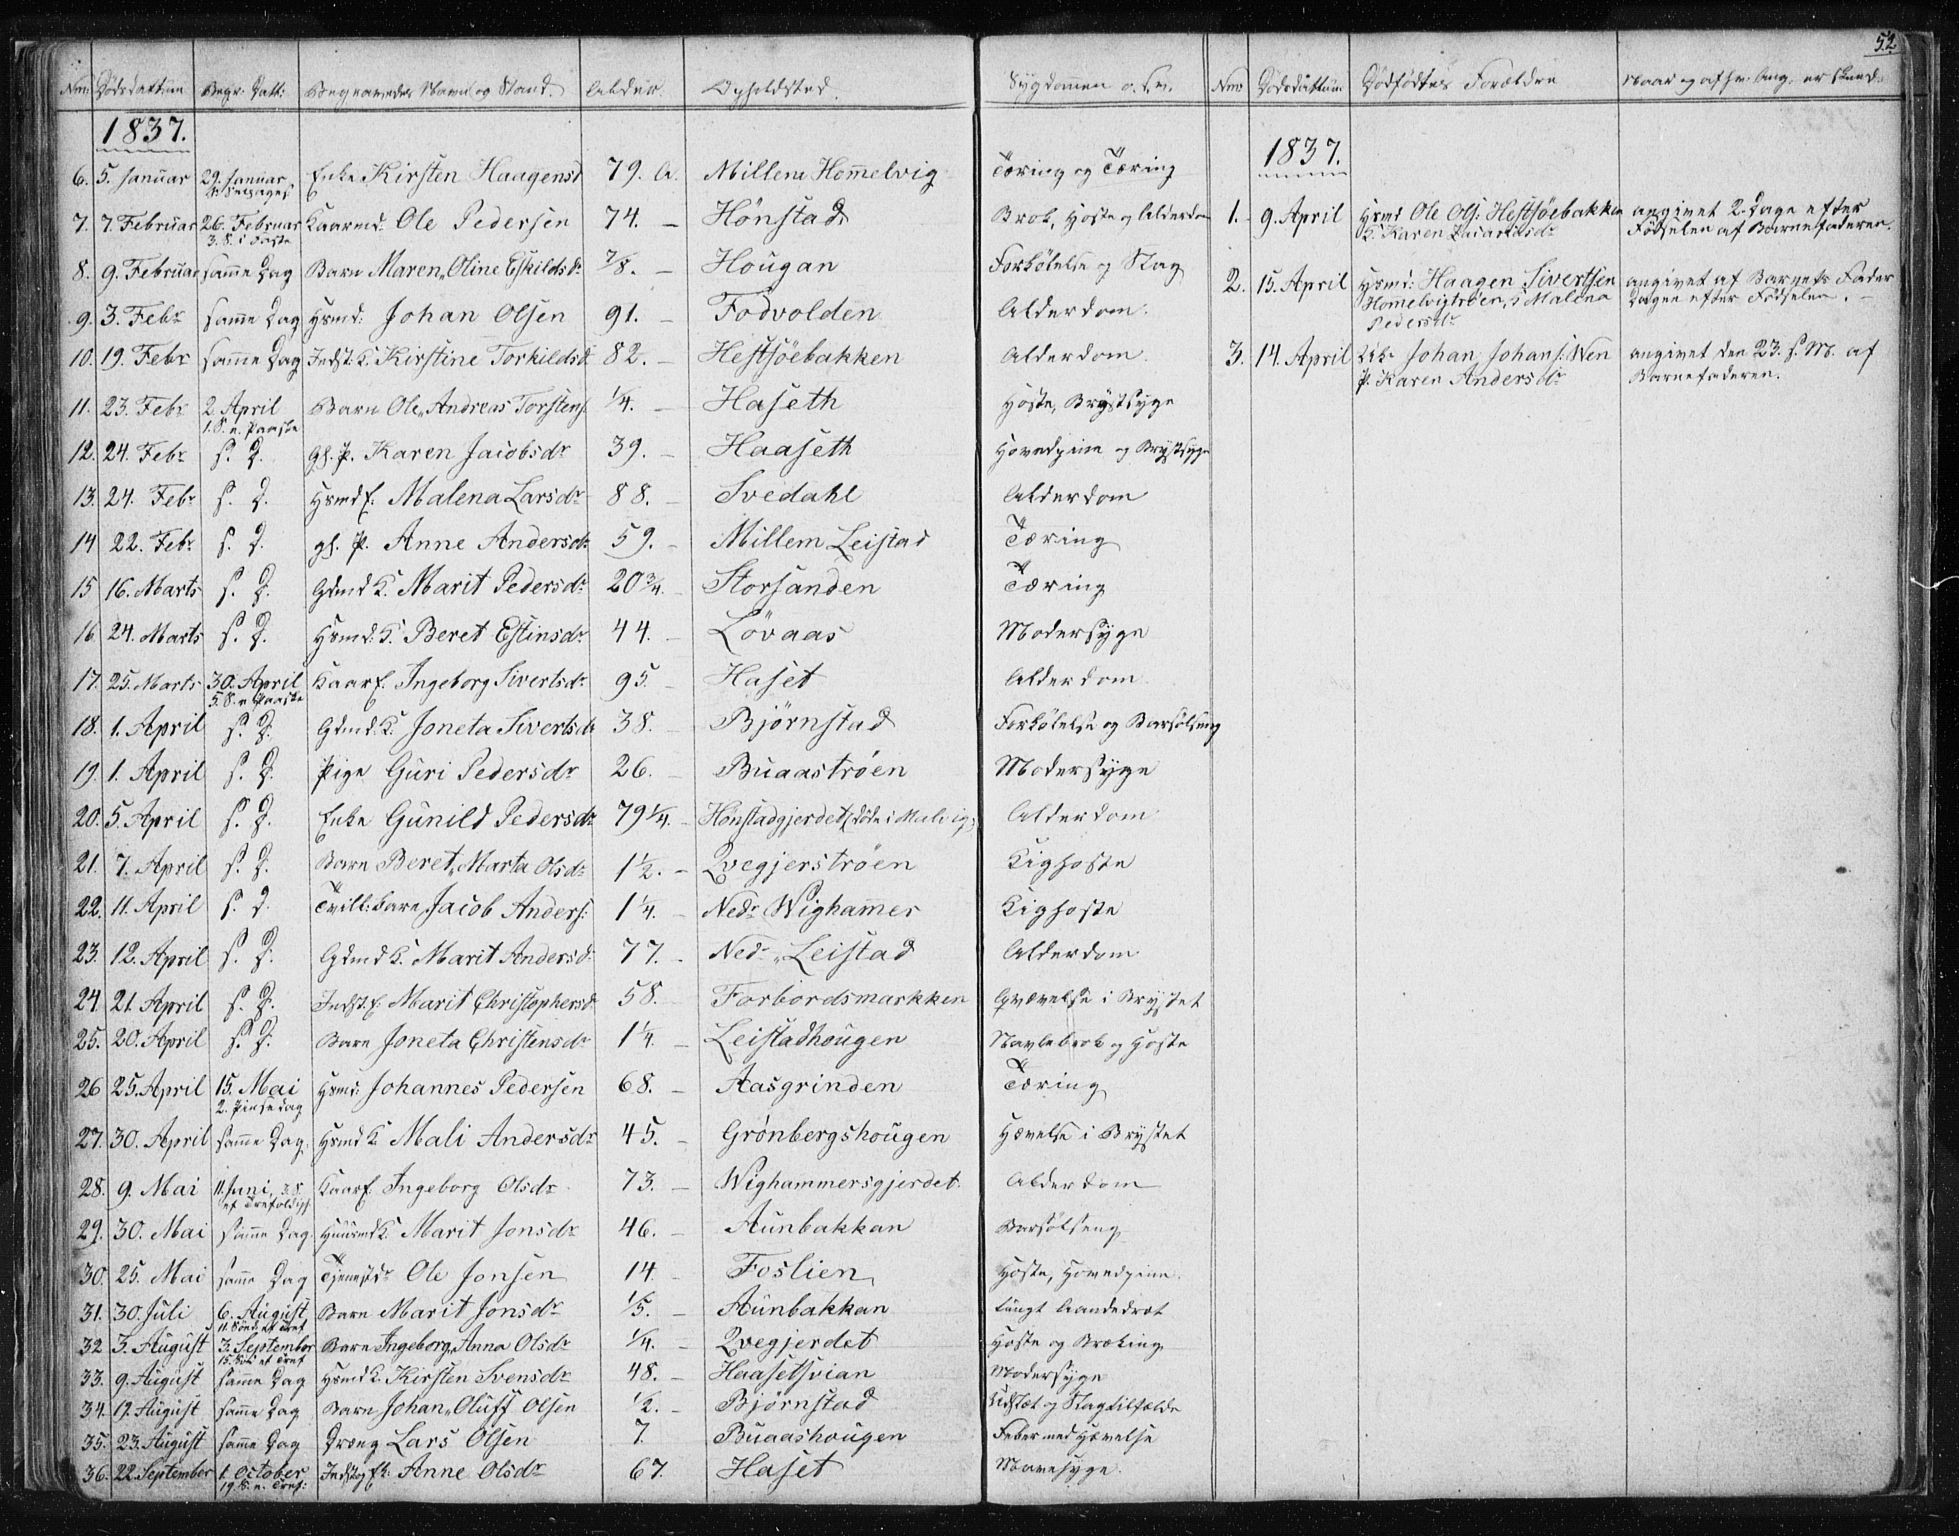 52
Nm: Dødsdattum Begr: Datt: Begravedes Navn og Stand. Alder. Opholdsted. Sygdommen o. s. v. Nm: Dødsdattum Dødfødtes Forældre Naar og af hv: Ang. er skeed.
1837.
6. 5. Januar 29. Januar Enke Kirsten Haagensd 79. A. Millem Hommelvig Tæring og Tæring
7. 7. Februar 26. Februar 3. S. i Faste Kaarmd. Ole Pedersen 74. – Hønstad Brok, Hoste og Alderdom
8. 9. Februar samme Dag Barn Maren, Oline Eskildsdr 7/8. – Hougan Forkølelse og Slag
9. 3. Febr samme Dag Hsmd: Johan Olsen 91. – Fodvolden Alderdom.
10. 19. Febr samme Dag Indst: K. Kirstine Torkildsd 82. – Hestsjøebakken Alderdom.
11. 23. Febr 2. April 1. S. e. Paaske Barn Ole, Andreas Torstens. 1/4. – Haseth Hoste, Brystsyge
12. 24. Febr s. D. gl. P. Karen Jacobsdr 39. – Haaseth Hovedpine og Brystsyge
13. 24. Febr s. D. Hsmd E. Malena Larsdr 88. – Svedahl Alderdom
14 22. Febr s. D. gl. P. Anne Andersdr 59. – Millem Leistad Tæring
15 16. Marts s. D. Gdmd K. Marit Pedersdr 20 3/4. – Storsanden Tæring
16. 24. Marts s. D. Hsmd. K. Beret Estinsdr 44. – Løvaas Modersyge
17. 25. Marts 30. April 5. S. e. Paaske Kaare. Ingeborg Sivertsdr 95. – Haset Alderdom
18. 1. April s. D. Gdmd. K. Joneta Sivertsdr 38. – Bjørnstad Forkølelse og Barselseng
19. 1. April s. D. Pige Guri Pedersdr 26. – Buaastrøen Modersyge
20. 5. April s. D. Enke Gunild Pedersdr 79 1/4. – Hønstadgjerdet (døde i Malvig) Alderdom
21. 7. April s. D. Barn Beret, Marta Olsdr 1 1/2. – Qvegjerstrøen Kighoste
22. 11. April s. D. Tvill: barn Jacob Anders: 1 1/4. – Nedr Wighammer Kighoste
23. 12. April s. D. Gdmd K. Marit Andersd. 77. – Ned. Leistad Alderdom
24. 21. April s. D. Indst. E. Marit Christophersd. 58. – Forbordsmarkken Qvævelse i Brystet
25. 20. April s. D. Barn Joneta Christensdr 1 1/4. – Leistadhougen Navlebrok og Hoste
26 25. April 15. Mai 2. Pinsedag Hsmd: Johannes Pedersen 68. – Aasgrinden Tæring
27. 30. April samme Dag Hsmd K. Mali Andersdr 45. – Grønbergshougen Hævelse i Brystet
28. 9. Mai 11. Juni, 3. S. ef. Trefoldigh Kaare. Ingeborg Olsdr 73. – Wighammersgjerdet Alderdom
29. 30. Mai samme Dag Huusmd K. Marit Jonsdr 46. – Aunbakkan Barselseng
30. 25. Mai samme Dag Tjenestdr Ole Jonsen 14 – Foslien Hoste, Hovedpine.
31. 30. Juli 6. August 11. Sønd. ef. Tref Barn Marit Jonsdr 1/5. – Aunbakkan tungt Aandedræt
32 3. August 3. September 15. Sønd. ef. Tref Barn Ingeborg, Anna Olsdr 1/4. – Qvegjerdet Hoste og Brækning
33. 9. August samme Dag Hsmd K. Kirsten Svensdr 48. – Haasetsvian Modersyge
34. 17. August samme Dag Barn Johan, Oluff Olsen 1/2. – Bjørnstad Udslæt og Slagtilfælde
35. 23. August samme Dag Dreng Lars Olsen 7. Buaashougen Feber med Hævelse
36. 22. September 1. October 19. S. e. Tref: Anne Olsdr 67. Haset Mavesyge.
1837.
1. 9. April Hsmd Ole Ols: Hestsjøebakken K. Karen Zacariasdr angivet 2. Dage efter Fødselen af Barnefaderen.
2. 15. April Hsmd: Haagen Sivertsen Homelvigtrøen, K. Malena Pedersdr angivet af Barnets Fader Dagen efter Fødselen. –
3. 14. April Johan Johans: Wen P. Karen Andersdr angivet den 23. s. M. af Barnefaderen.